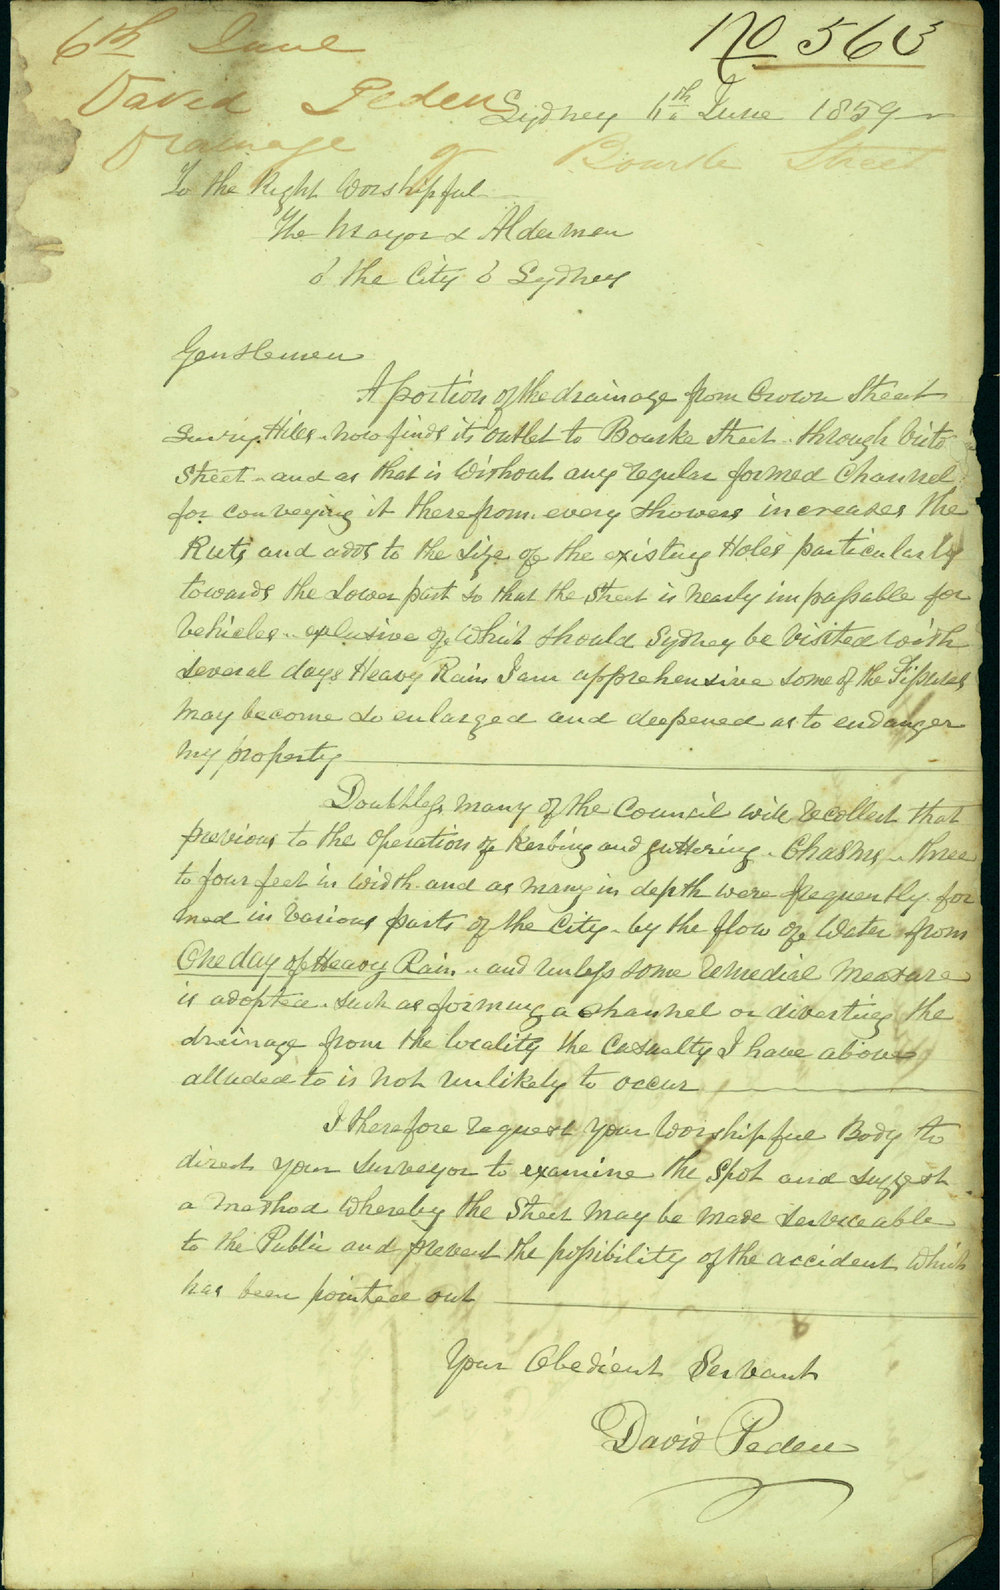 6th June
No 563
David Peden
Sydney 6th June 1859
Drainage of Bourke Street
To the Right Worshipful
The Mayor & Aldermen
o the City o Sydney
Gentlemen
A portion of the drainage from Crown Street
Surry Hills now finds its outlet to Bourke Street through
Street and as that is without any regular formed Channel
for conveying it therefrom every showers increases the
Ruts and adds to the size of the existing Holes particularly
towards the Lower part so that the Street is nearly impassable for
Vehicles exlusive of which should Sydney be visited with
several days Heavy Rain I am apprehensive some of the Fissures
may become so enlarged and deepened as to endanger
my property
Doubtless many of the Council will recollect that
previous to the operation of Kerbing and guttering Chasms three
to four feet in width and as many in depth were frequently for
med in various parts of the City by the flow of Water from
One day of Heavy Rain and unless some remedial measure
is adopted such as forming a channel or diverting the
drainage from the locality the Casualty I have above
alluded to is not unlikely to occur
I therefore request your Worshipful Body to
direct your surveyor to examine the spot and suggest
a method whereby the Street may be made serviceable
to the Public and prevent the possibility of the accident which
has been pointed out
Your Obedient Servant
David Peden